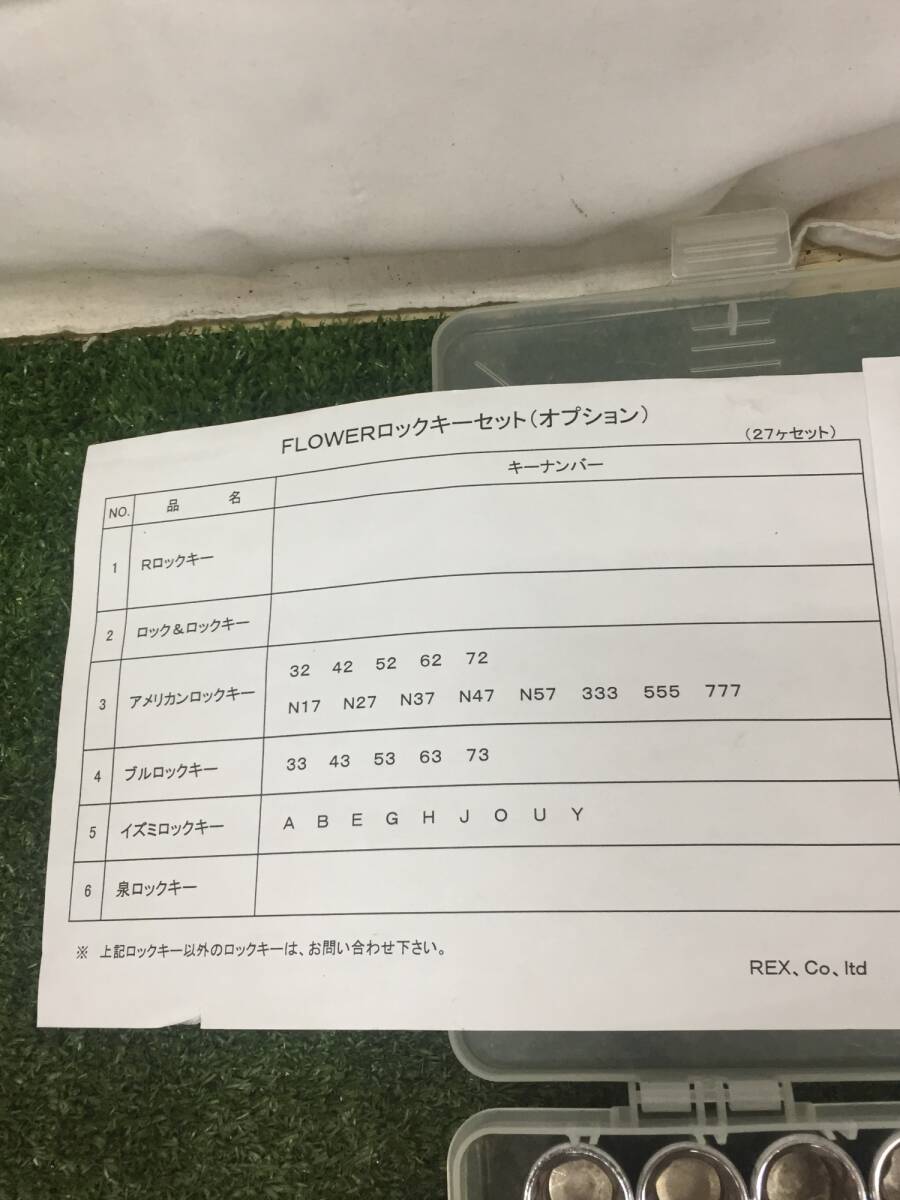 FLOWERロックキーセット(オプション)
(27ヶセット)
NO. 品 名 キーナンバー
1 Rロックキー
2 ロック&ロックキー
3 アメリカンロックキー 32 42 52 62 72
N17 N27 N37 N47 N57 333 555 777
4 ブルロックキー 33 43 53 63 73
5 イズミロックキー A B E G H J O U Y
6 泉ロックキー
※ 上記ロックキー以外のロックキーは、お問い合わせ下さい。
REX、Co、ltd